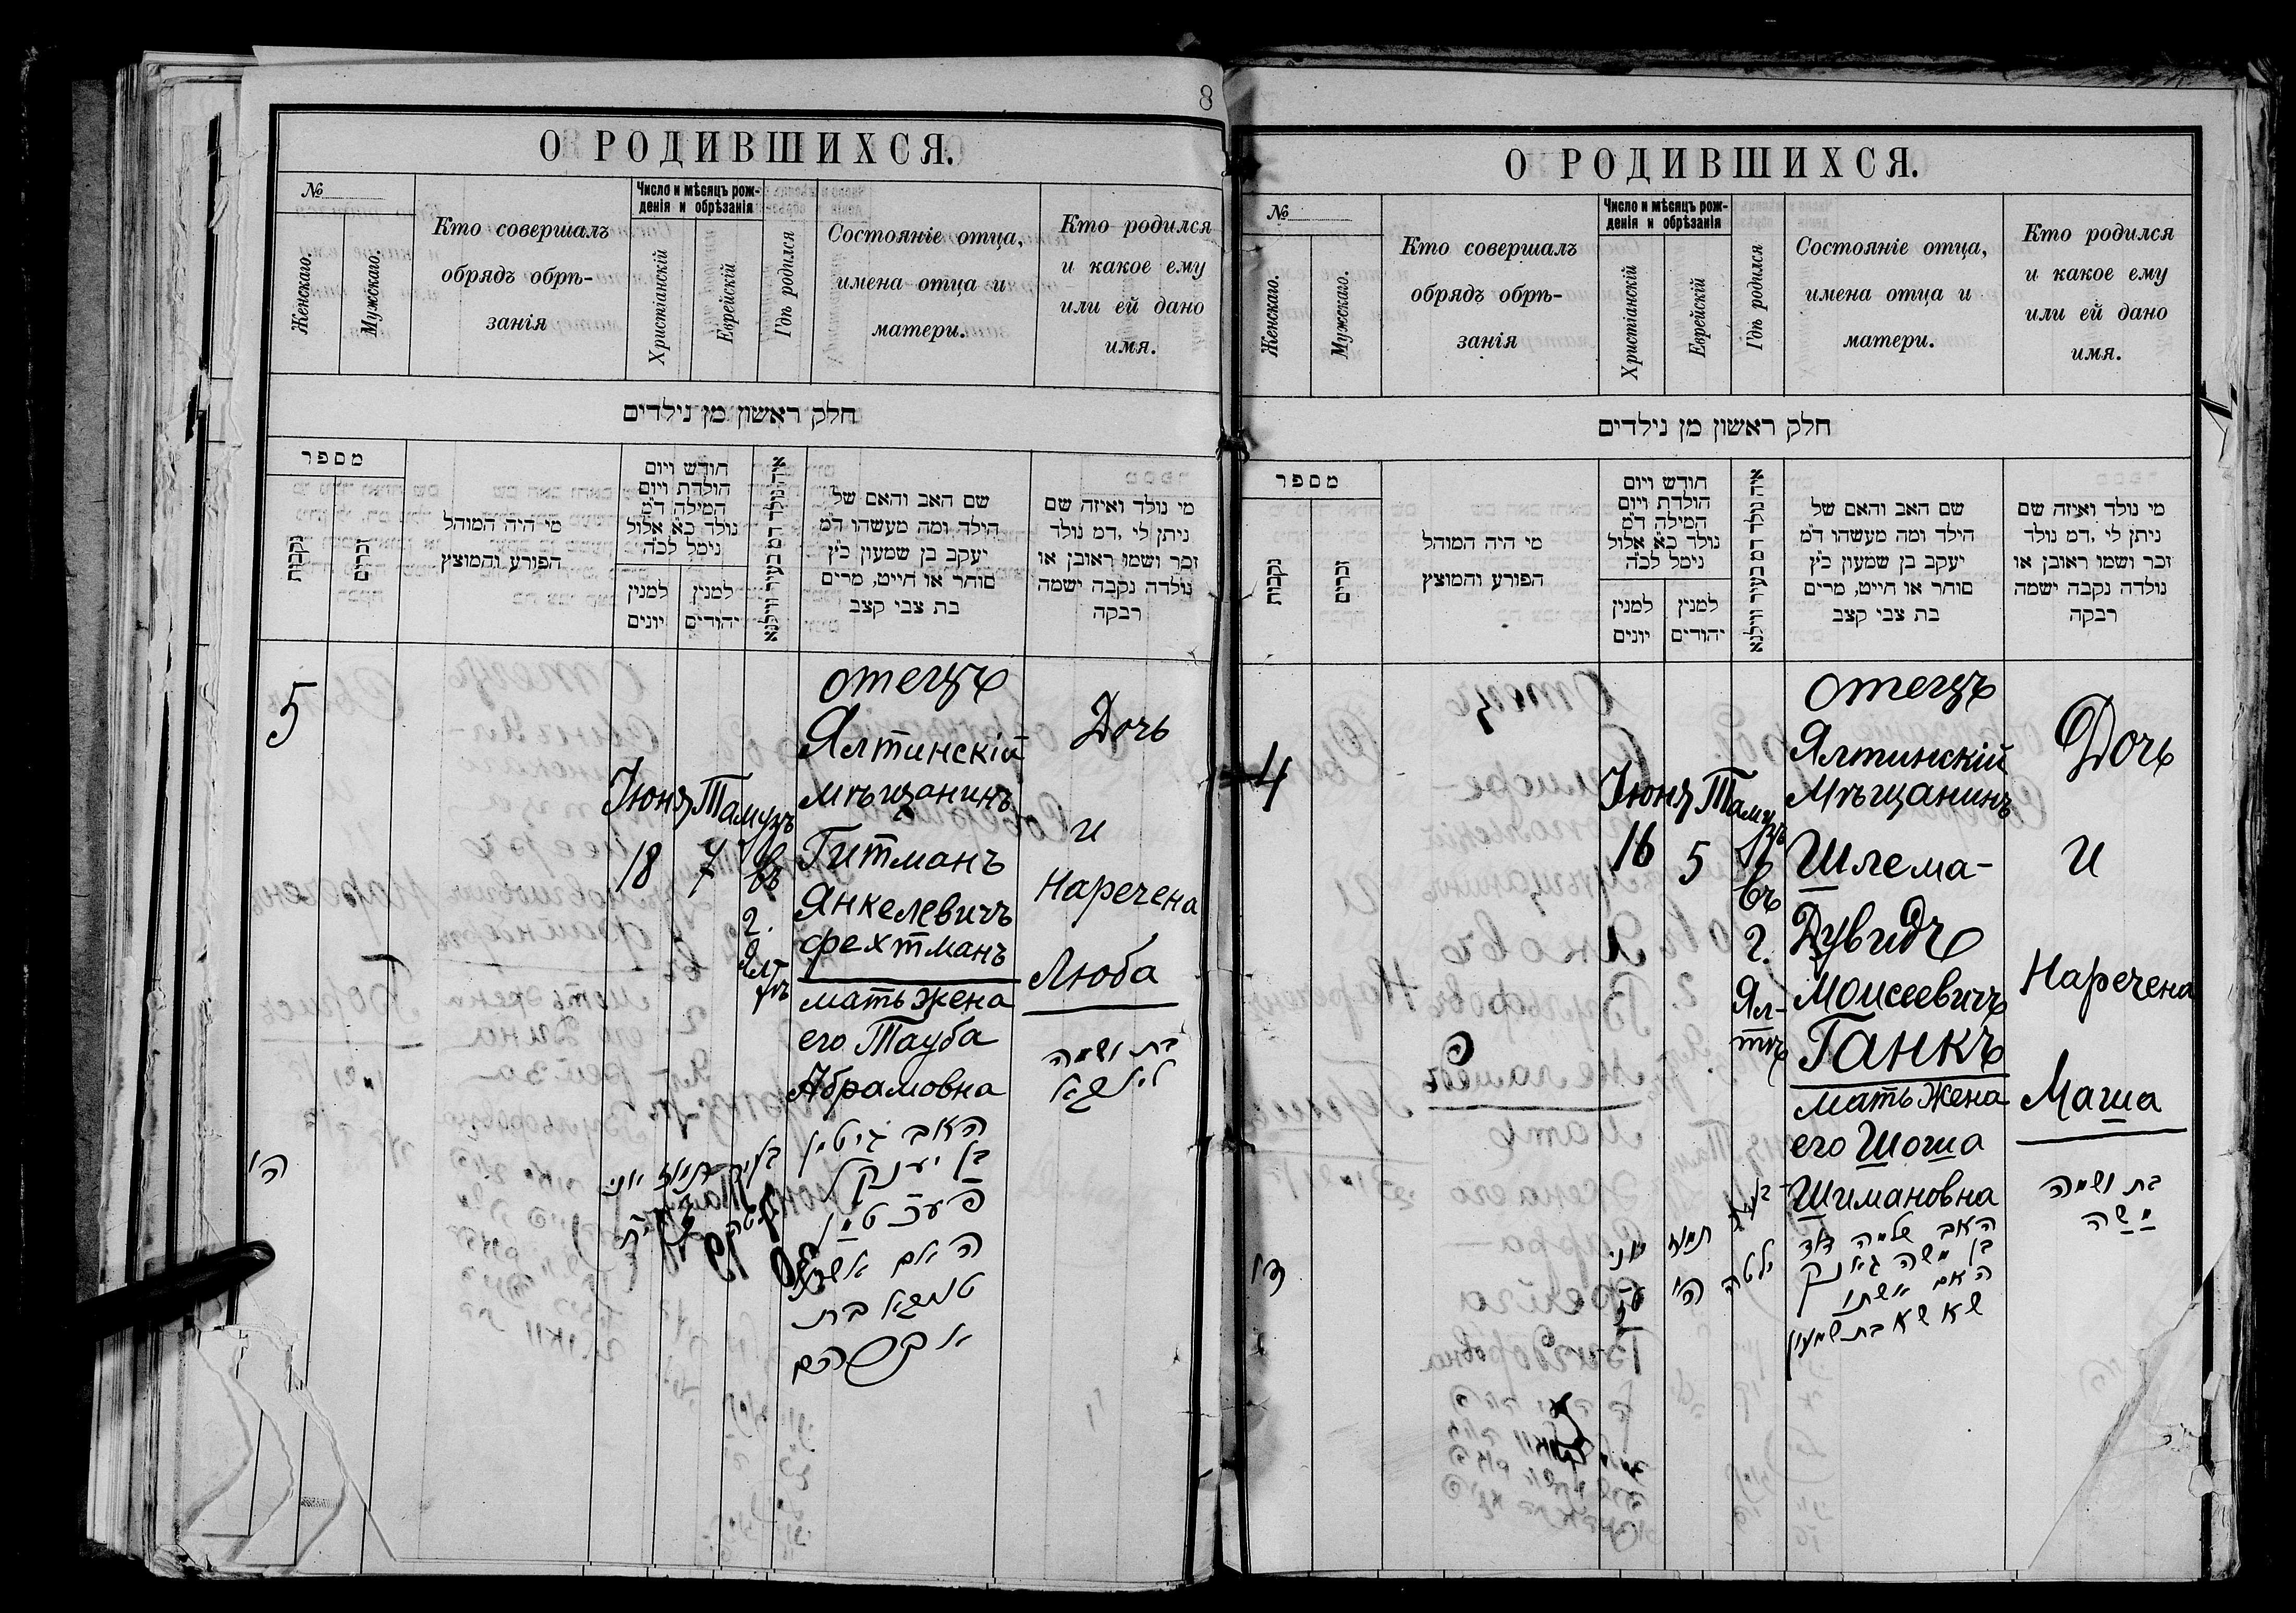 8
О РОДИВШИХСЯ.
№
Женскаго.
Мужскаго.
Кто совершалъ
обрядъ обрѣ-
занія
Число и мѣсяцъ рож-
денія и обрѣзанія
Христіанскій
Еврейскій
Гдѣ родился
Состояніе отца,
имена отца и
матери.
Кто родился
и какое ему
или ей дано
имя.
חלק ראשון מן נילדים
מספר
נקבות
זכרים
מי היה המוהל
הפורע והמוצץ
חודש ויום
הולדת ויום
המילה ד״מ
נולד כ״א אלול
נימל לכ״ה
למנין
יונים
למנין
יהודים
איה נולד דמ בעיר ווילנא
שם האב והאם של
הילד ומה מעשהו ד״מ
יעקב בן שמעון כ״ץ
סוחר או חייט, מרים
בת צבי קצב
מי נולד ואיזה שם
ניתן לי, דמ נולד
זכר ושמו ראובן או
נולדה נקבה ישמה
רבקה
5
Іюня
18
Тамузъ
7
въ
г.
Ял
тѣ
отецъ
Ялтинскій
мѣщанинъ
Гитманъ
Янкелевичъ
Фехтманъ
мать жена
его Тауба
Абрамовна
Дочь
и
Наречена
Люба
ה׳
יוני
תמוז
האב גיטמן
בן יענקל
פעכטמן
האם אשתו
טויבא בת
אברהם
בת ושמה
ליובא
О РОДИВШИХСЯ.
№
Женскаго.
Мужскаго.
Кто совершалъ
обрядъ обрѣ-
занія
Число и мѣсяцъ рож-
денія и обрѣзанія
Христіанскій
Еврейскій
Гдѣ родился
Состояніе отца,
имена отца и
матери.
Кто родился
и какое ему
или ей дано
имя.
חלק ראשון מן נילדים
מספר
נקבות
זכרים
מי היה המוהל
הפורע והמוצץ
חודש ויום
הולדת ויום
המילה ד״מ
נולד כ״א אלול
נימל לכ״ה
למנין
יונים
למנין
יהודים
איה נולד דמ בעיר ווילנא
שם האב והאם של
הילד ומה מעשהו ד״מ
יעקב בן שמעון כ״ץ
סוחר או חייט, מרים
בת צבי קצב
מי נולד ואיזה שם
ניתן לי, דמ נולד
זכר ושמו ראובן או
נולדה נקבה ישמה
רבקה
4
Іюня
16
Тамузъ
5
въ
г.
Ял-
тѣ
отецъ
Ялтинскій
Мѣщанинъ
Шлема-
Дувидъ
Моисеевичъ
Ганкъ
мать Жена
его Шоша
Шимановна
Дочь
и
Наречена
Маша
ד׳
יוני
תמוז
ה׳
ילטה
האב שלמה דוד
בן משה גאנק
האם אשתו
שאשא בת שמעון
בת ושמה
משה